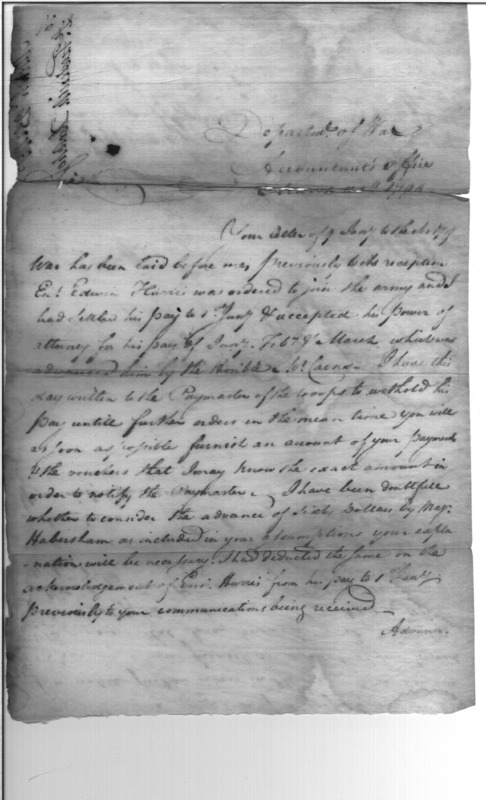 Departmt. of War
Accountant's office
1794
Your letter of 9 Jany to the Secy of
War has been laid before me, previously to its reception
Ens. Edwin Harris was ordered to join the army and
had settled his pay to 1st Jany & accepted his power of
attorney for his pay of Jany, Feby & March which was
advanced him by the I have this
day written to the Paymaster of the troops to withold his
pay untill further orders in the mean time you will
as soon as possible furnish an account of your payments
& the vouchers that I may know the exact amount in
order to notify the Paymaster. I have been doubtfull
whether to consider the advance of Dollars by Majr
Habersham as included in your assumptions your expla
-nation will be necessary. I had deducted the same on the
acknowledgement of Ens. Harris from his pay to 1st Jany
previously to your communications being received
Advance.